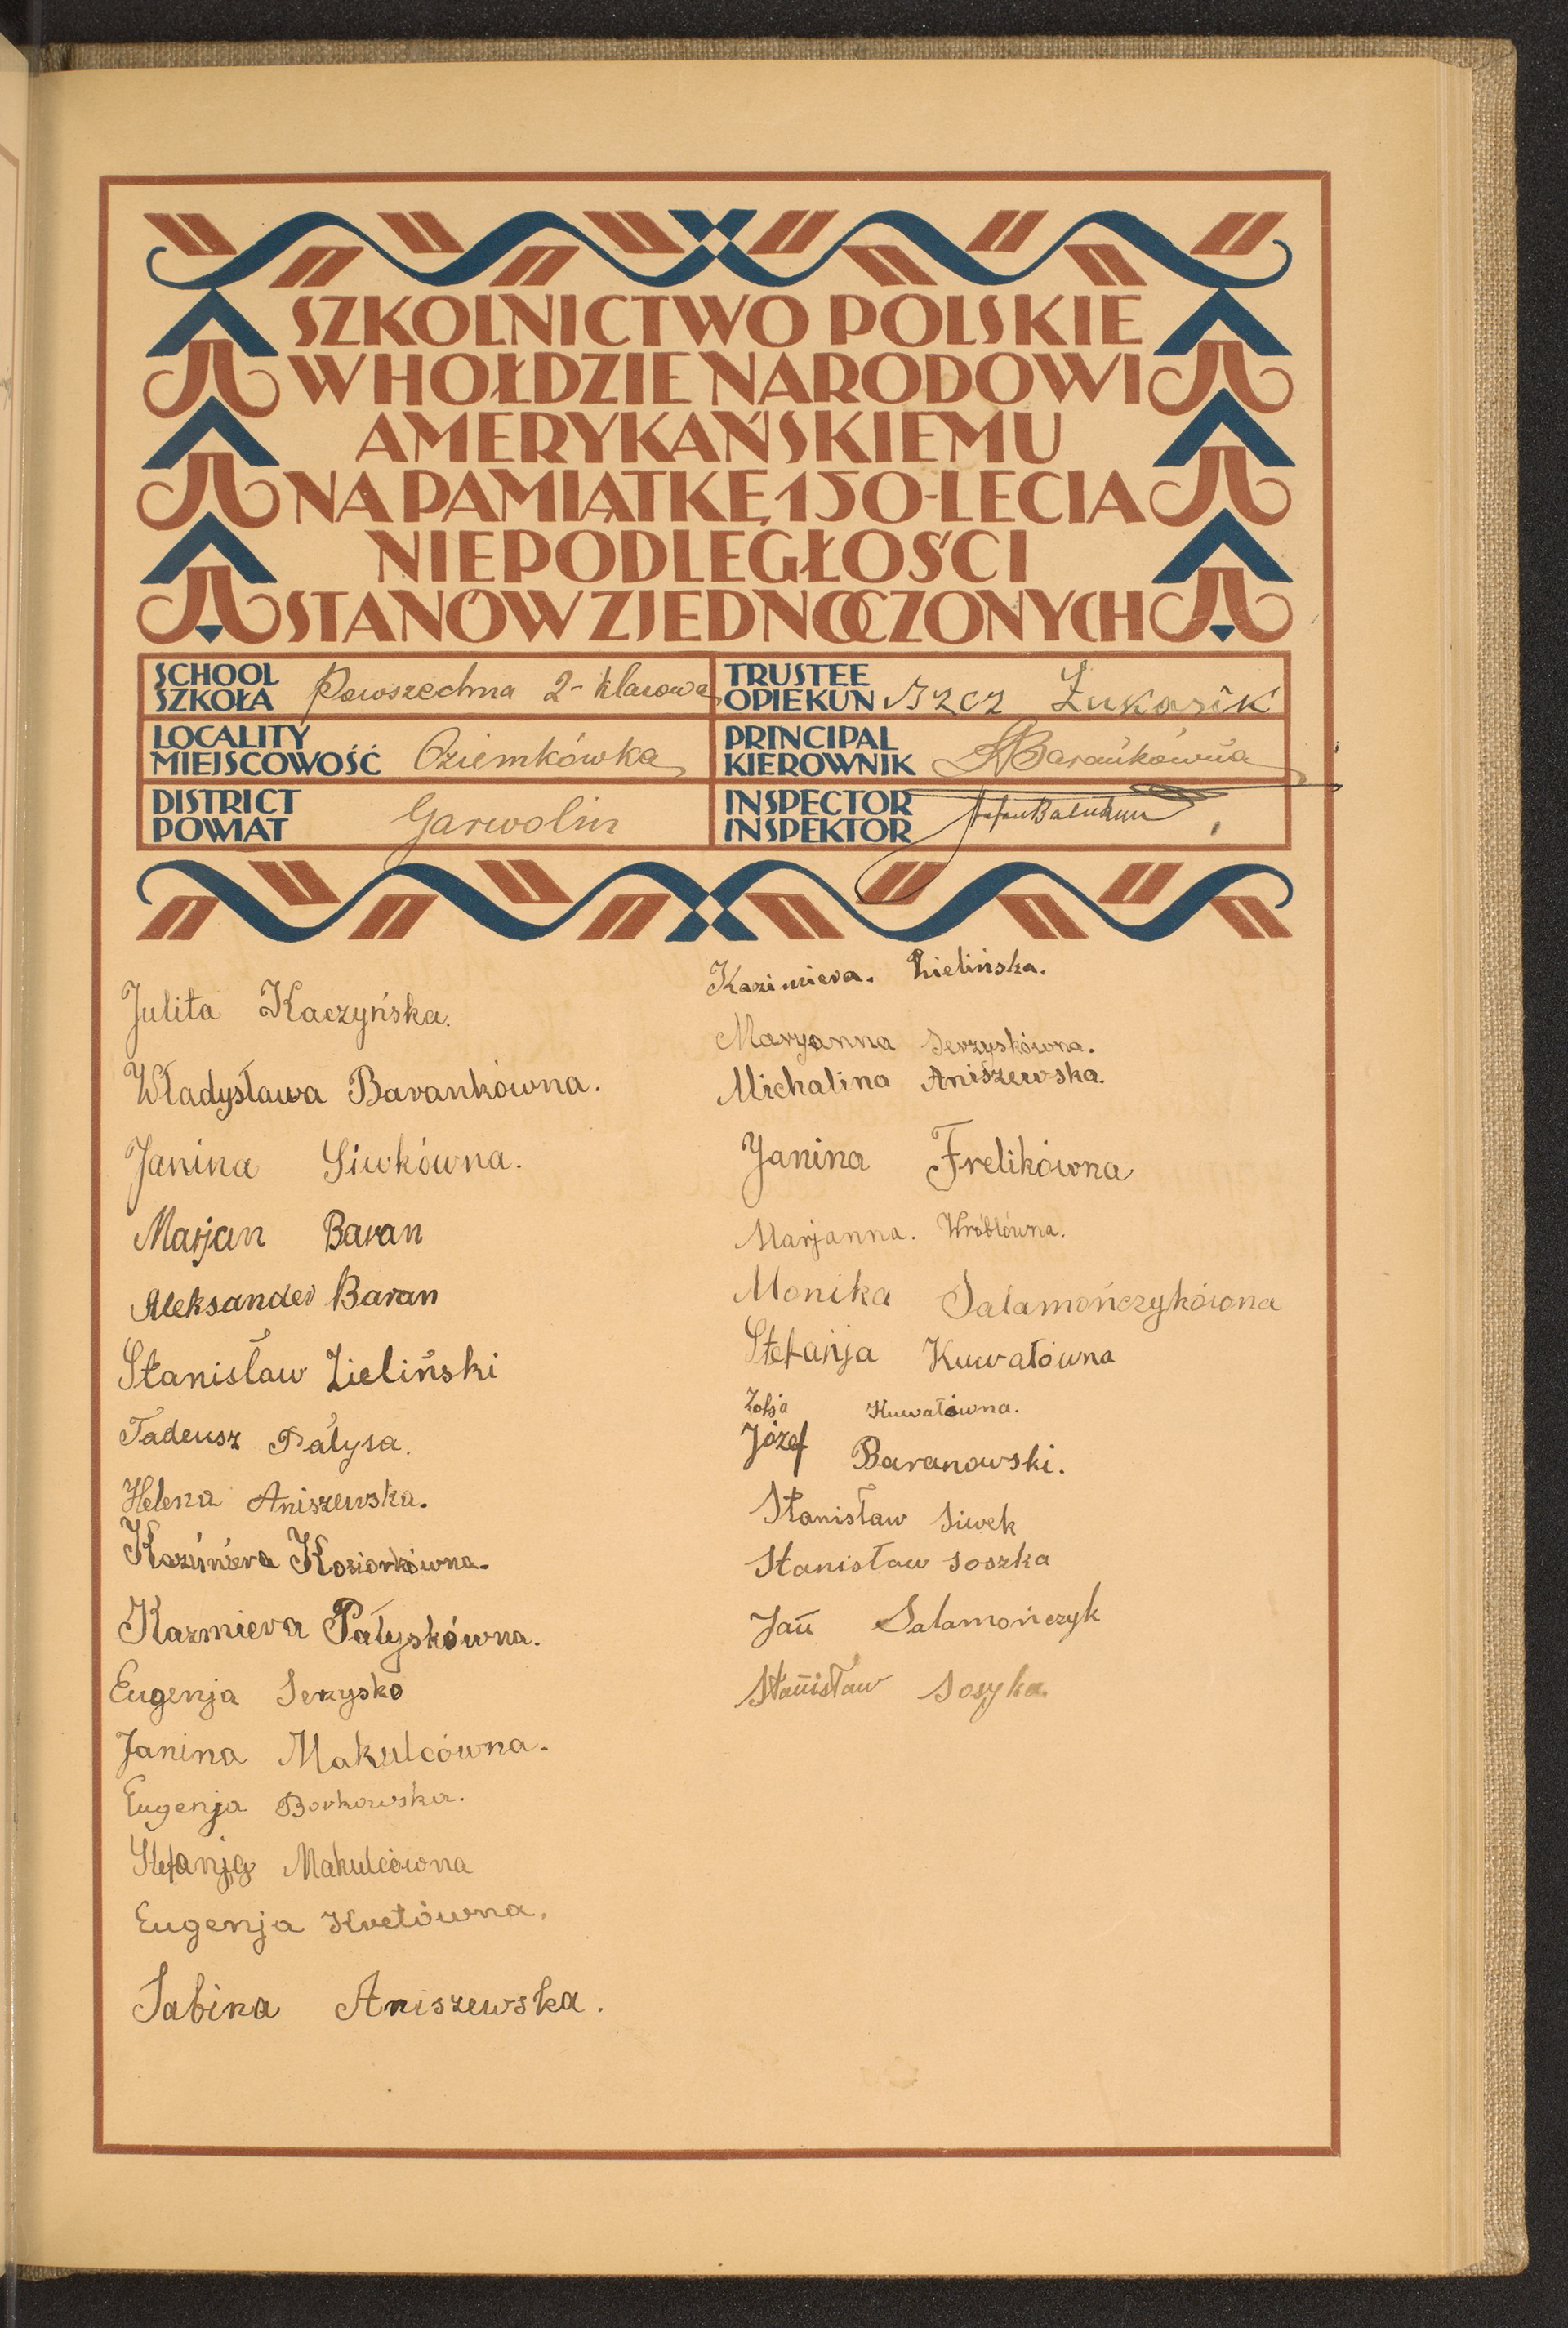 SZKOLNICTWO POLSKIE
W HOŁDZIE NARODOWI
AMERYKAŃSKIEMU
NA PAMIĄTKĘ 150-LECIA
NIEPODLEGŁOŚCI
STANÓW ZJEDNOCZONYCH
SCHOOL
SZKOŁA Powszechna 2-klasowa
TRUSTEE
OPIEKUN Łukasik
LOCALITY
MIEJSCOWOŚĆ Oziemkówka
PRINCIPAL
KIEROWNIK Barankówna
DISTRICT
POWIAT Garwolin
INSPECTOR
INSPEKTOR
Julita Kaczyńska.
Władysława Barankówna.
Janina Siwkówna.
Marjan Baran
Aleksander Baran
Stanisław Zieliński
Tadeusz Pałysa.
Helena Aniszewska.
Kazimiera Kosiorkówna.
Kazmiera Pałyskówna.
Eugenja Serzysko
Janina Makulcówna.
Eugenja Borkowska.
Stefanja Makulcówna
Eugenja Kretówna.
Sabina Aniszewska.
Kazimiera. Zielińska.
Maryanna Serzyskówna.
Michalina Aniszewska.
Janina Frelikówna
Marjanna. Wróblówna.
Monika Salamończykówna
Stefanja Kuwałówna
Zofja Kuwałówna.
Józef Baranowski.
Stanisław Siwek
Stanisław Soszka
Jan Salamończyk
Stanisław